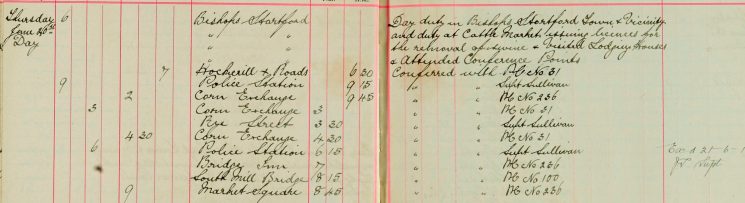 Thursday 6 Bishops Stortford Day duty in Bishops Stortford Town & Vicinity
June 26th " " and duty at Cattle Market issuing licences for
Day " " the removal of swine & Visited Lodging Houses
" " & Attended Conference Points
7 Hockerill & Roads 6 30 Conferred with PC No 31
9 Police Station 9 15 " " Supt Sullivan
2 Corn Exchange 9 45 " " PC No 236
3 Corn Exchange 3 " " PC No 31
Rye Street 3 30 " " Supt Sullivan
4 30 Corn Exchange 4 30 " " PC No 31
6 Police Station 6 15 " " Supt Sullivan
Bridge Inn 7 " " PC No 236
South Mill Bridge 8 15 " " PC No 100
9 Market Square 8 45 " " PC No 236
Supt